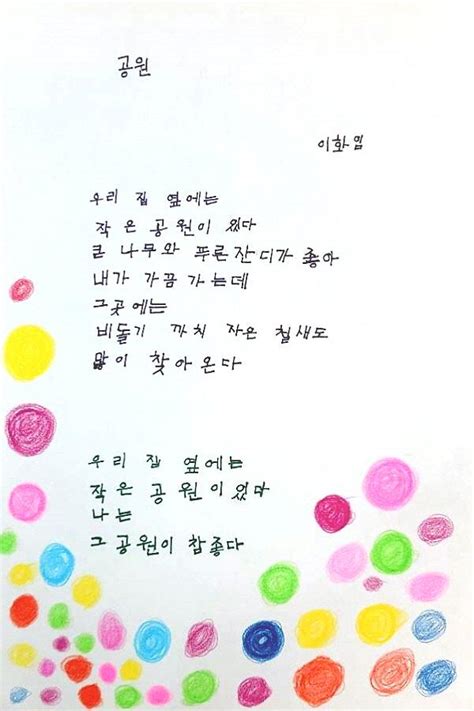 공원
이화임
우리 집 옆에는
작은 공원이 있다
큰 나무와 푸른잔디가 좋아
내가 가끔 가는데
그곳에는
비둘기 까치 자은 칠새도
많이 찾아온다
우리 집 옆에는
작은 공원이있다
나는
그공원이 참좋다